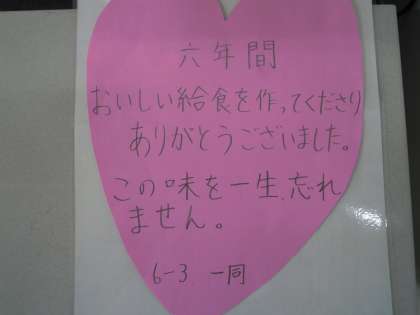 六年間
おいしい給食を作ってくださり
ありがとうございました。
この味を一生、忘れ
ません。
6-3 一同